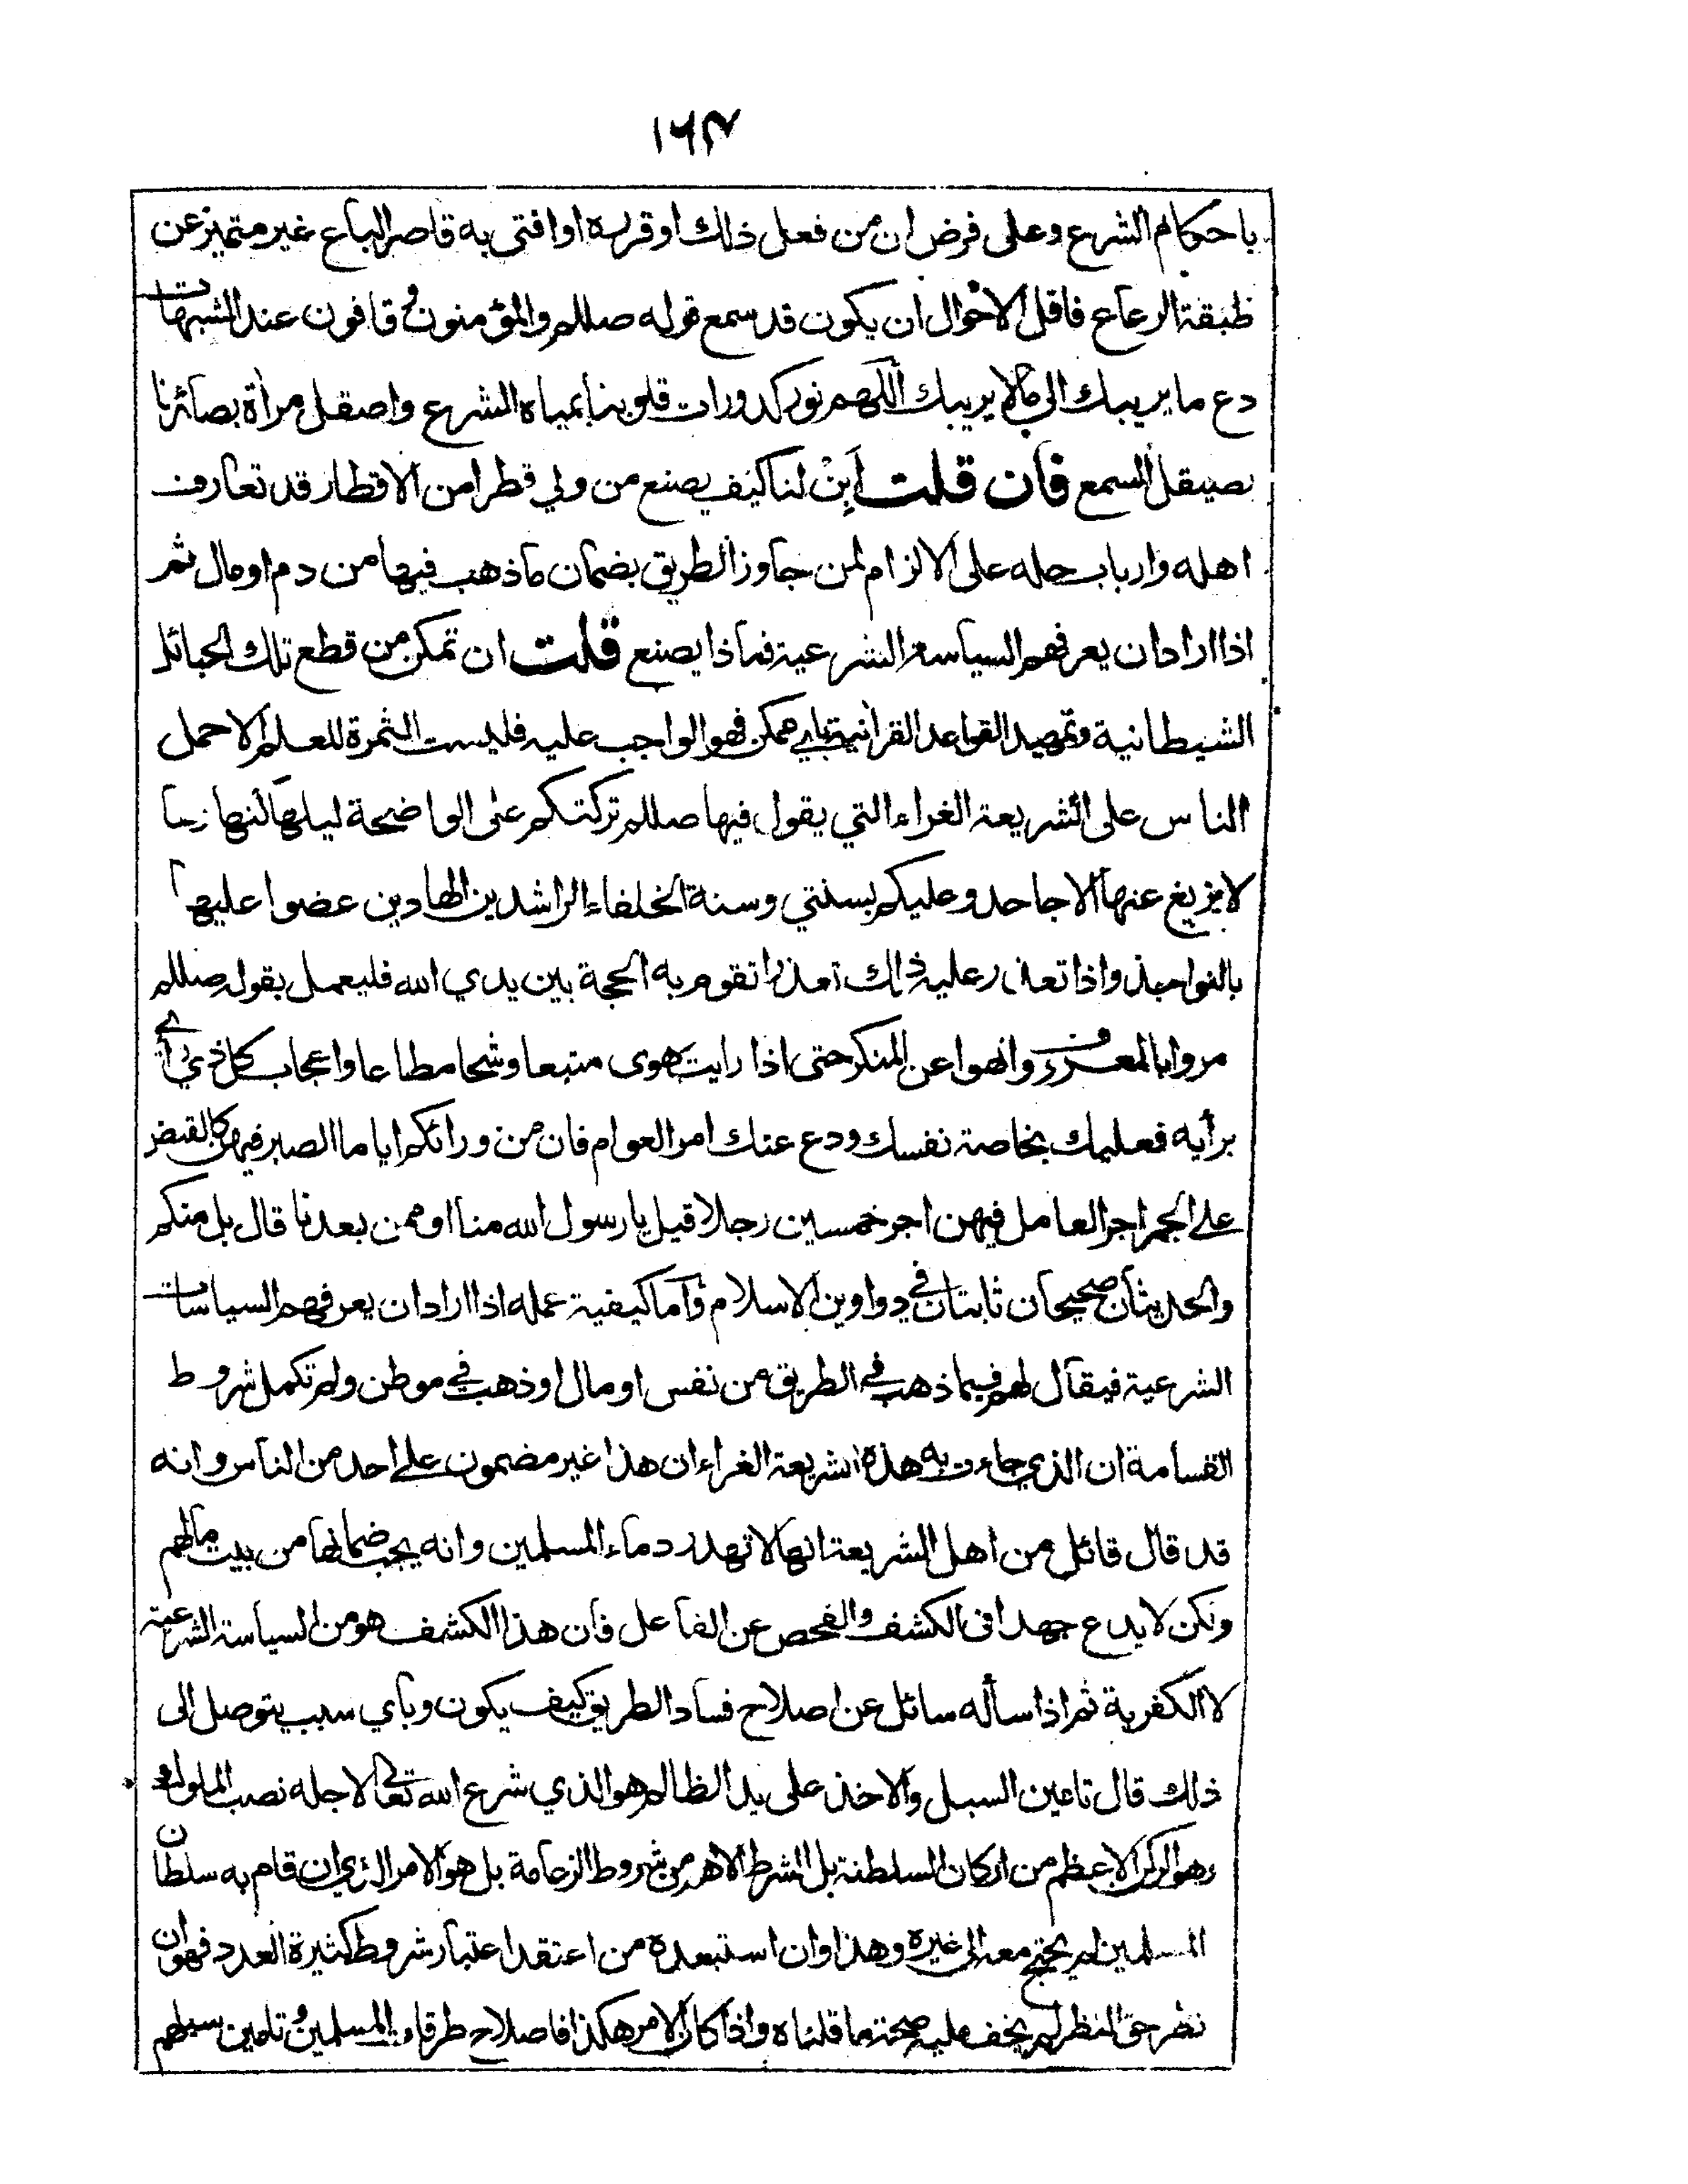 ١٦٣
باحكام الشرع وعلى فرض ان من فعل ذلك او قرره او افتى به قاصر الباع غير متميز عن
طبقة الرعاع فاقل الاحوال ان يكون قد سمع قوله صللم والمؤمنون وقافون عند الشبهات
دع ما يريبك الى مالا يريبك اللهم نور كدورات قلوبنا بمياه الشرع واصقل مرأة بصائرنا
بصيقل السمع فان قلت ابن لنا كيف يصنع من ولي قطرا من الاقطار قد تعارف
اهله وارباب حله على الالزام لمن جاوز الطريق بضمان ما ذهب فيها من دم او مال ثم
اذا اراد ان يعرفهم السياسة الشرعية فماذا يصنع قلت ان تمكن من قطع تلك الحبائل
الشيطانية وتمهيد القواعد القرانية باي ممكن فهو الواجب عليه فليست الثمرة للعلم الا حمل
الناس على الشريعة الغراء التي يقول فيها صللم تركتكم على الواضحة ليلها كنهارها
لا يزيغ عنها الا جاحد وعليكم بسنتي وسنة الخلفاء الراشدين الهادين عضوا عليها
بالنواجذ واذا تعذر عليه ذلك تعذرا تقوم به الحجة بين يدي الله فليعمل بقوله صللم
مروا بالمعروف وانهوا عن المنكر حتى اذا رايت هوى متبعا وشحا مطاعا واعجاب كل ذي رأي
برأيه فعليك بخاصة نفسك ودع عنك امر العوام فان من ورائكم اياما الصبر فيهن كالقبض
على الجمر اجر العامل فيهن اجر خمسين رجلا قيل يا رسول الله منا او ممن بعدنا قال بل منكم
والحديثان صحيحان ثابتان في دواوين الاسلام وأما كيفية عمله اذا اراد ان يعرفهم السياسات
الشرعية فيقال لهم فيما ذهب في الطريق من نفس او مال او ذهب في موطن ولم تكمل شروط
القسامة ان الذي جاءت به هذه الشريعة الغراء ان هذا غير مضمون على احد من الناس وانه
قد قال قائل من اهل الشريعة انها لا تهدر دماء المسلمين وانه يجب ضمانها من بيت مالهم
ولكن لا يدع جهدا في الكشف والفحص عن الفاعل فان هذا الكشف هو من السياسة الشرعية
لا الكفرية ثم اذا سأله سائل عن اصلاح فساد الطريق كيف يكون وبأي سبب يتوصل الى
ذلك قال تامين السبل والاخذ على يد الظالم هو الذي شرع الله تعالى لاجله نصب الملوك
وهو الركن الاعظم من اركان السلطنة بل الشرط الاهم من شروط الزعامة بل هو الامر الذي ان قام به سلطان
المسلمين لم يحتج معه الى غيره وهذا وان استبعده من اعتقد اعتبار شروط كثيرة العدد فهو ان
نظر حق النظر لم يخف عليه صحة ما قلناه واذا كان الامر هكذا فاصلاح طرقات المسلمين وتامين سبلهم